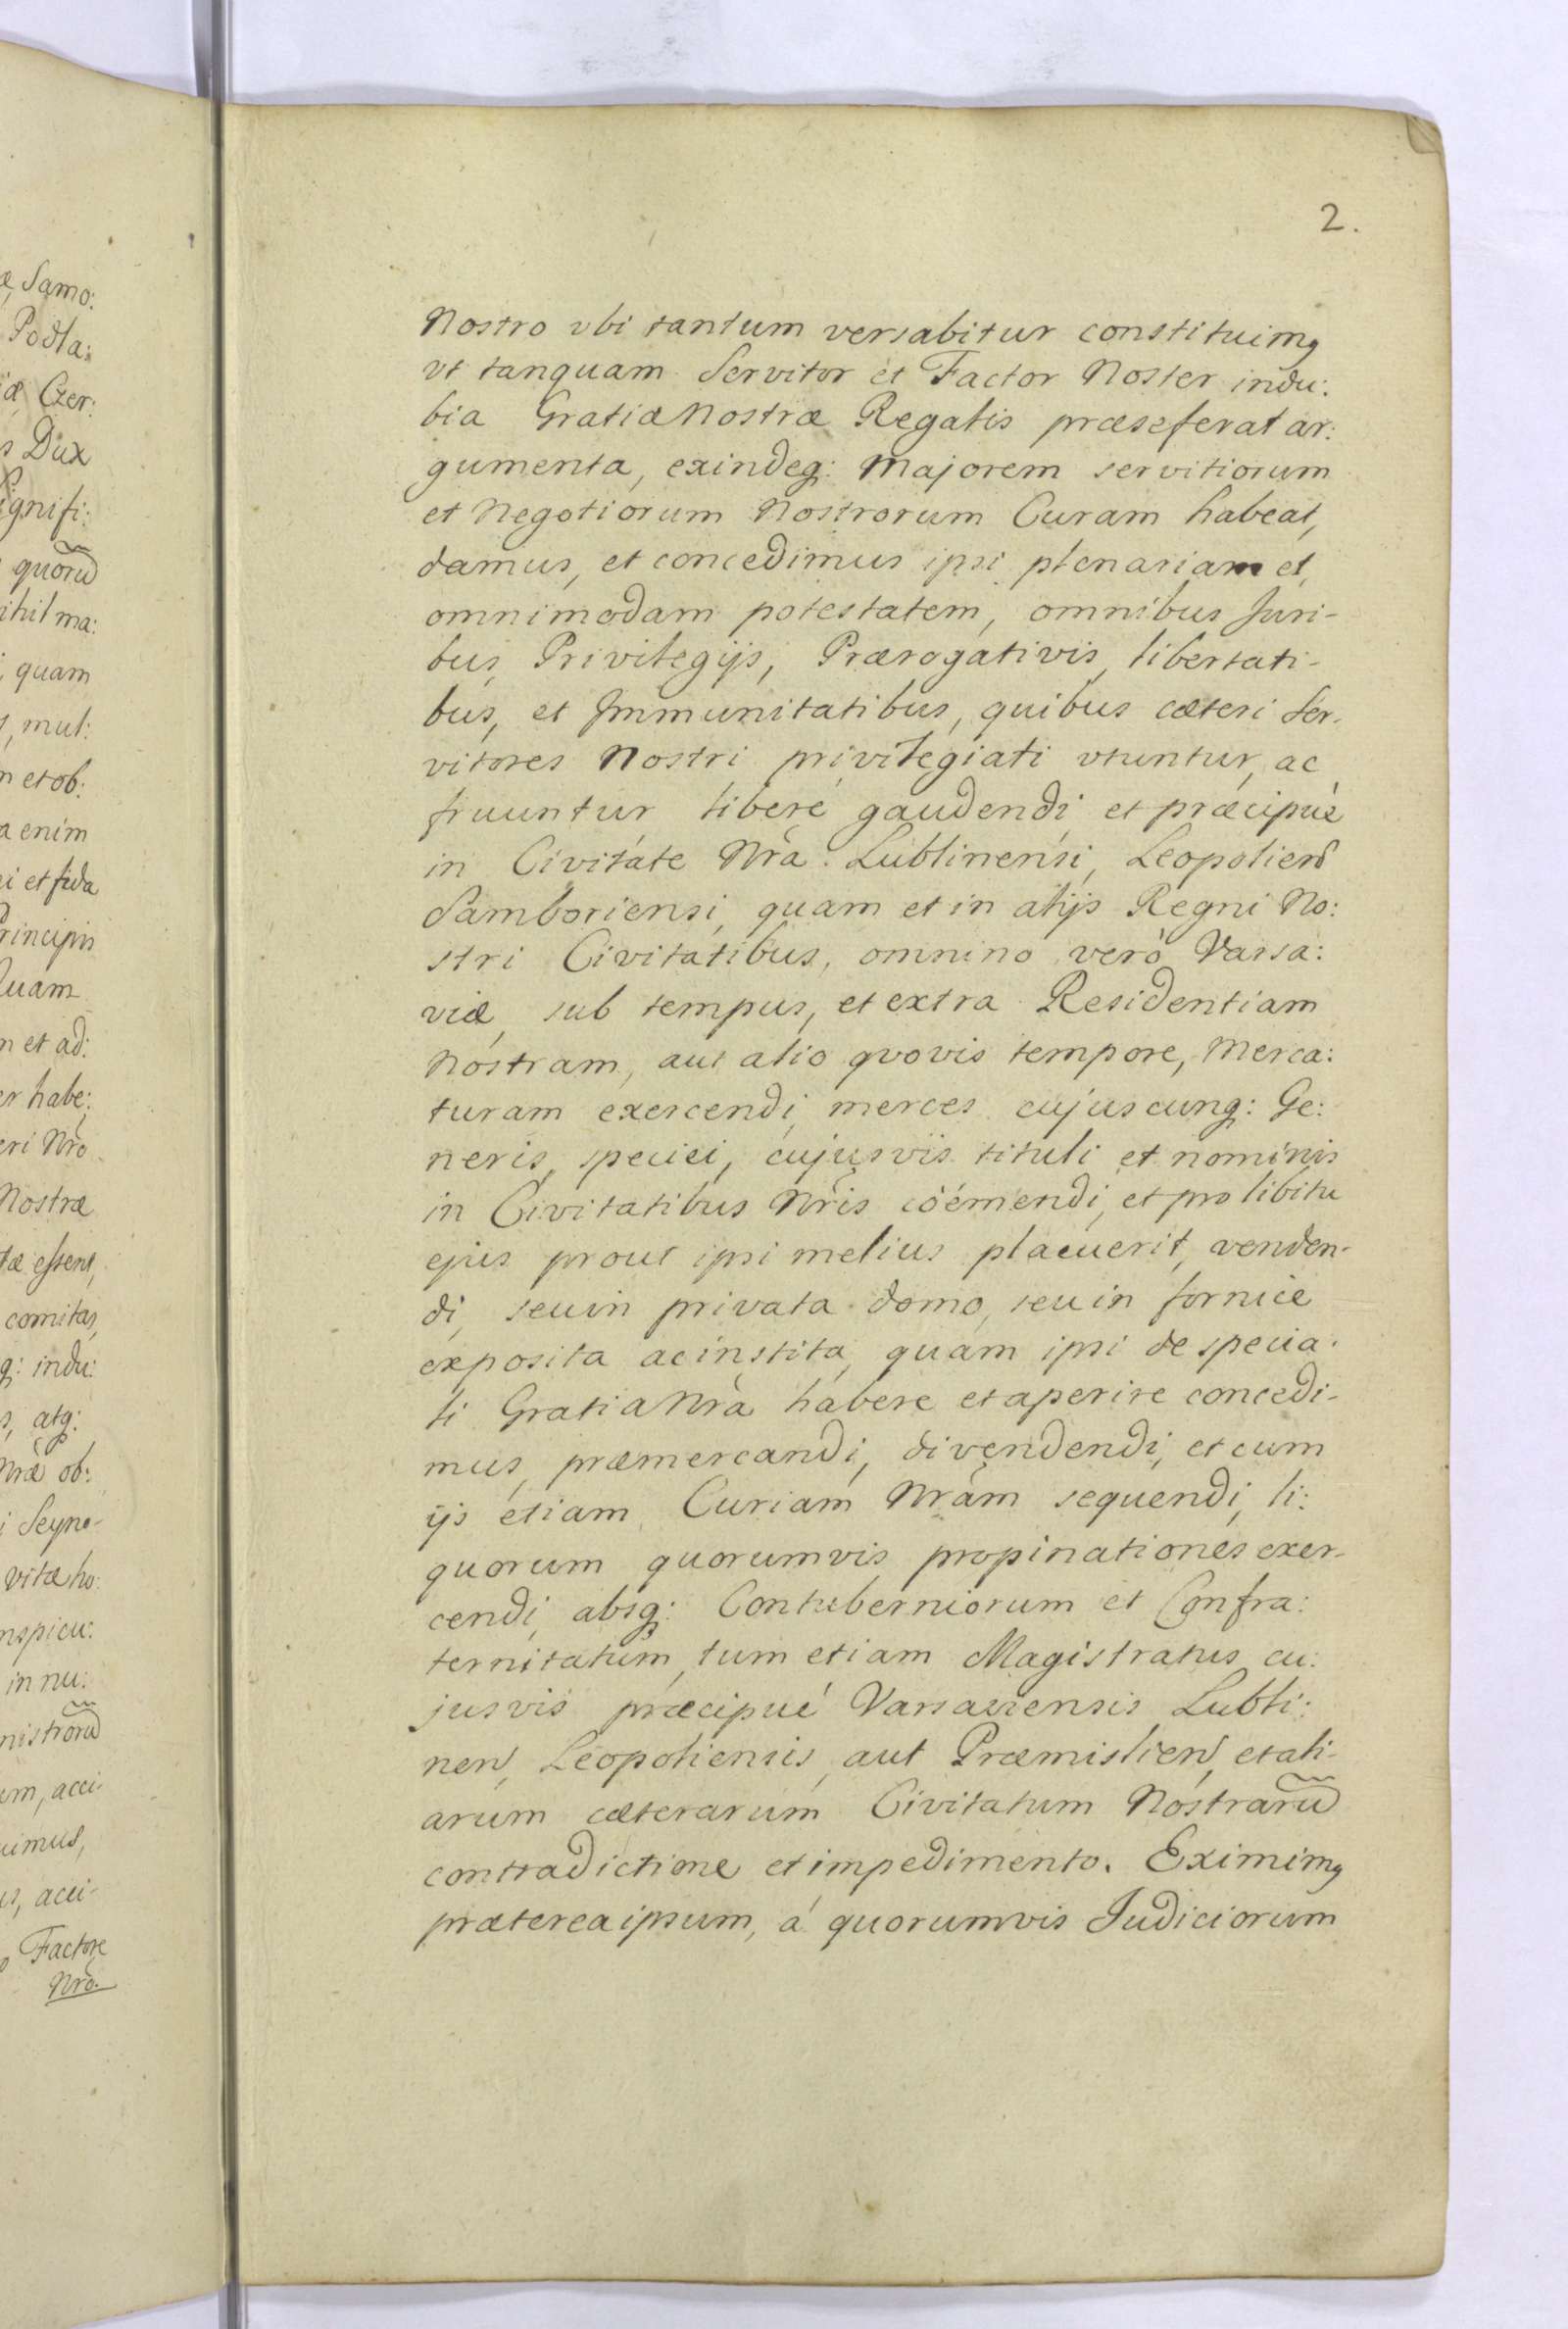 2.
Nostro vbi tantum versabitur constituimꝫ
vt tanquam Servitor et Factor Noster indu:
bia Gratiæ Nostræ Regalis præseferat ar:
gumenta, exindeq: Majorem servitiorum
et Negotiorum Nostrorum Curam habeat,
damus, et concedimus ipsi plenariam et
omnimodam potestatem, omnibus Juri-
bus, Privilegijs, Prærogativis, libertati-
bus, et Immunitatibus, quibus cæteri Ser-
vitores Nostri privilegiati vtuntur, ac
fruuntur liberé gaudendi, et præcipùe
in Civitate Nrã Lublinensi, Leopolien
Samboriensi, quam et in alijs Regni No:
stri Civitatibus, omnino verò Varsa:
viæ, sub tempus, et extra Residentiam
Nostram, aut alio qvovis tempore, Merca:
turam exercendi, merces cujuscunq: Ge:
neris, speciei, cujusvis tituli et nominis
in Civitatibus Nrĩs cöémendi, et pro libitu
ejus prout ipsi melius placuerit, venden-
di, seu in privata domo, seu in fornice
exposita ac instita, quam ipsi de specia-
li Gratia Nrã habere et aperire concedi-
mus, præmercandi, divendendi, et cum
ijs etiam Curiam Nrãm sequendi, li:
quorum quorumvis propinationes exer-
cendi, absq: Contuberniorum et Confra:
ternitatum, tum etiam Magistratus cu:
jusvis præcipué Varsaviensis Lubli:
nen, Leopoliensis, aut Præmislien, et ali-
arum cæterarum Civitatum Nostrarũ
contradictione et impedimento. Eximimꝫ
præterea ipsum, á quorumvis Judiciorum
æ, Samo:
Podla:
Czer:
Dux
ignifi:
quorũ
ihil ma:
quam
, mul:
n et ob:
a enim
i et fida
rincipis
uam
n et ad:
er habe:
eri Nrõ
Nostræ
tæ essent,
comitas,
q: indu:
s, atq:
Nræ ob:
i Seyno-
vitæ ho:
nspicu:
in nu:
nistrorũ
um, acci-
uimus,
us, acci-
Factore
Nrõ.